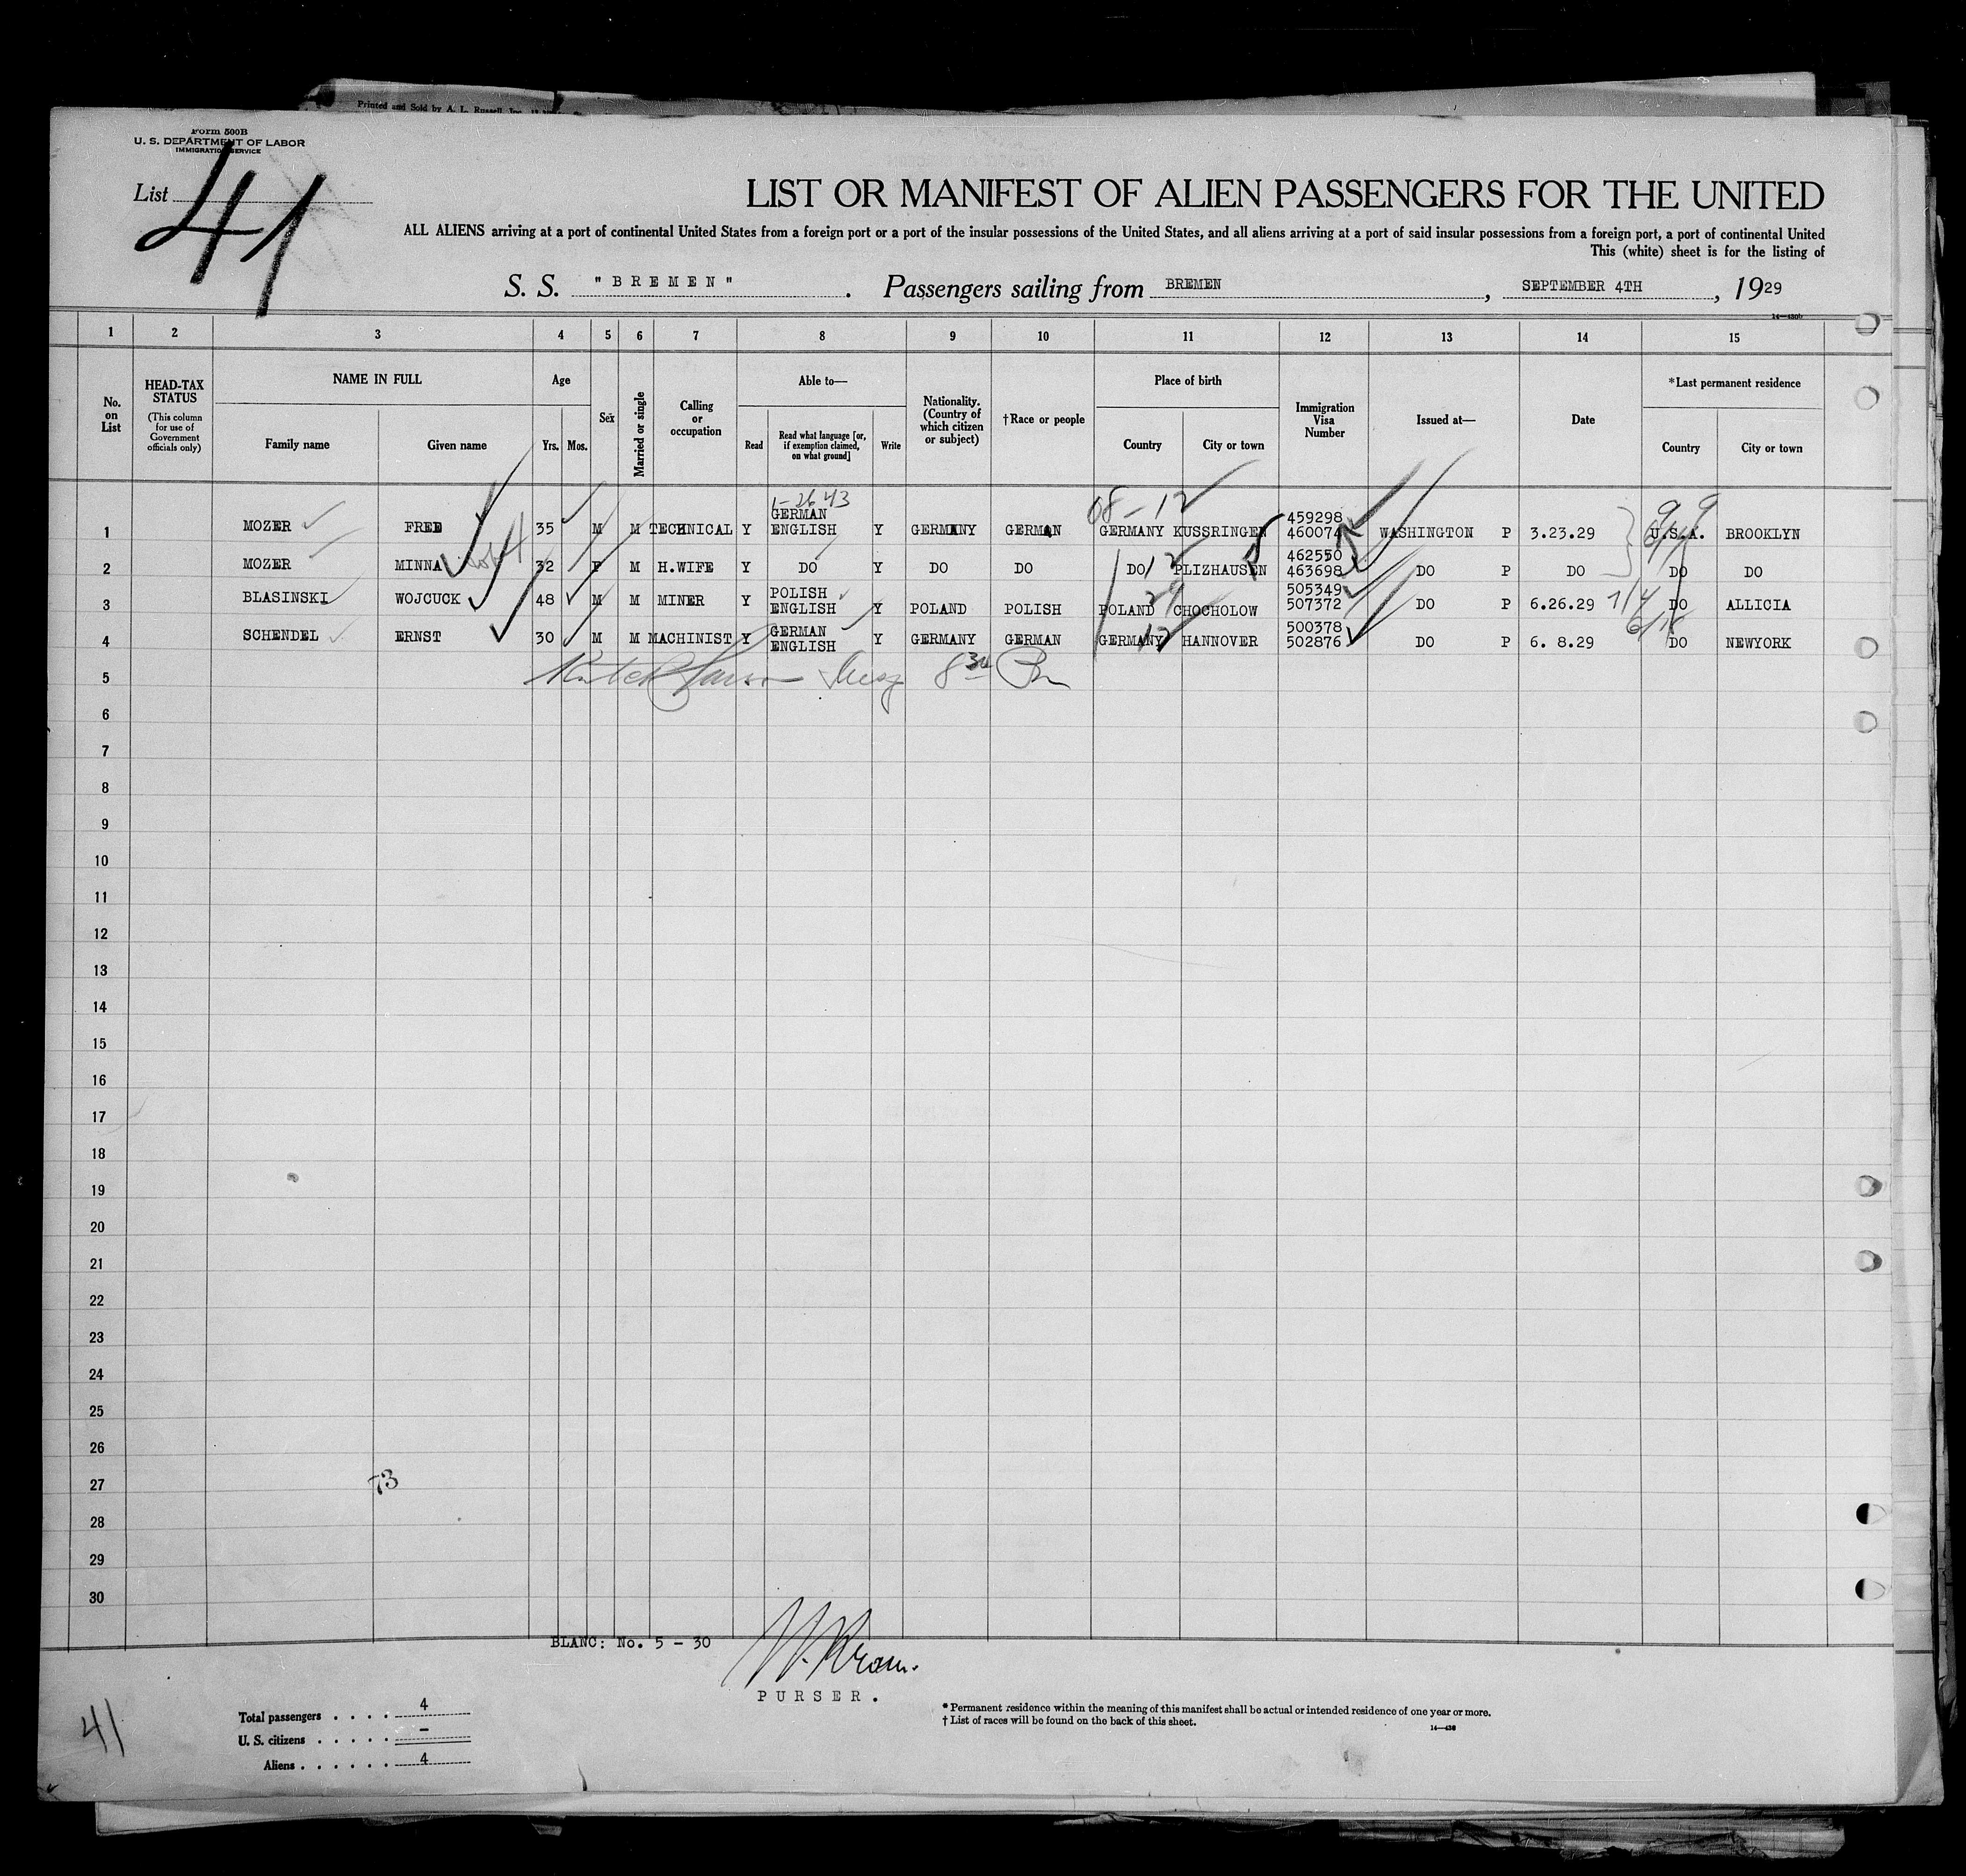 Printed and Sold by A. L. Russell, Inc.
Form 500B
U. S. DEPARTMENT OF LABOR
IMMIGRATION SERVICE
List 41
LIST OR MANIFEST OF ALIEN PASSENGERS FOR THE UNITED
ALL ALIENS arriving at a port of continental United States from a foreign port or a port of the insular possessions of the United States, and all aliens arriving at a port of said insular possessions from a foreign port, a port of continental United
This (white) sheet is for the listing of
S. S. "BREMEN". Passengers sailing from BREMEN, SEPTEMBER 4TH, 1929
1 2 3 4 5 6 7 8 9 10 11 12 13 14 15
No. on List
HEAD-TAX STATUS
(This column for use of Government officials only)
NAME IN FULL
Family name Given name
Age
Yrs. Mos.
Sex
Married or single
Calling or occupation
Able to—
Read
Read what language [or, if exemption claimed, on what ground]
Write
Nationality. (Country of which citizen or subject)
†Race or people
Place of birth
Country City or town
Immigration Visa Number
Issued at—
Date
*Last permanent residence
Country City or town
1-26 43
08-12
1 MOZER FRED 35 M M TECHNICAL Y GERMAN ENGLISH Y GERMANY GERMAN GERMANY KUSSRINGEN 459298 460074 WASHINGTON P 3.23.29 U.S.A. BROOKLYN
2 MOZER MINNA 32 F M H.WIFE Y DO Y DO DO DO 12 PLIZHAUSEN 462550 463698 DO P DO DO DO
3 BLASINSKI WOJCUCK 48 M M MINER Y POLISH ENGLISH Y POLAND POLISH POLAND 29 CHOCHOLOW 505349 507372 DO P 6.26.29 7/4 DO ALLICIA
4 SCHENDEL ERNST 30 M M MACHINIST Y GERMAN ENGLISH Y GERMANY GERMAN GERMANY 12 HANNOVER 500378 502876 DO P 6. 8.29 6/15 DO NEWYORK
5 8 30
6
7
8
9
10
11
12
13
14
15
16
17
18
19
20
21
22
23
24
25
26
27 73
28
29
30
BLANC: No. 5 - 30
PURSER.
41
Total passengers . . . . 4
U. S. citizens . . . . . —
Aliens . . . . . . 4
* Permanent residence within the meaning of this manifest shall be actual or intended residence of one year or more.
† List of races will be found on the back of this sheet.